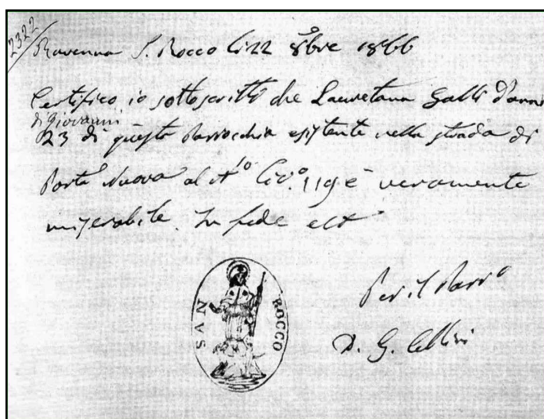 2322
Ravenna S. Rocco li 22 8bre 1866
Certifico io sottoscritto che Lauretana Galli d'anni
di Giovanni
23 di questa Parrocchia esistente nella strada di
Porta Nuova al No Civo. 119 è veramente
miserabile. In fede ect
Per il Parro
D. G. Cellini
SAN ROCCO